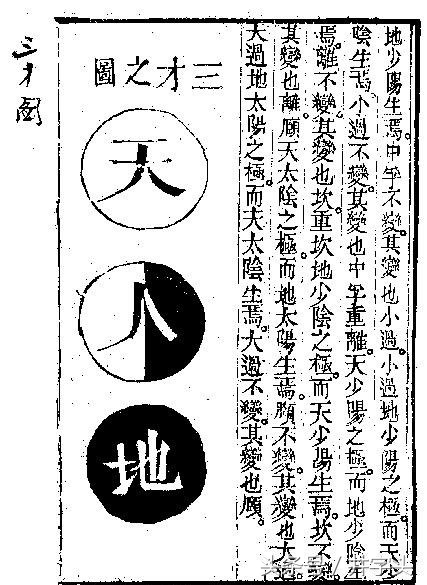 地少陽生焉。中孚不變。其變也小過。小過地少陽之極而天少
陰生焉。小過不變。其變也中孚重離。天少陽之極。而地少陰生
焉。離不變。其變也坎。重坎地少陰之極。而天少陽生焉。坎不變。
其變也離。頤天太陰之極。而地太陽生焉。頤不變。其變也大過。
大過地太陽之極而天太陰生焉。大過不變。其變也頤。
三才之圖
天
人
地
三才图